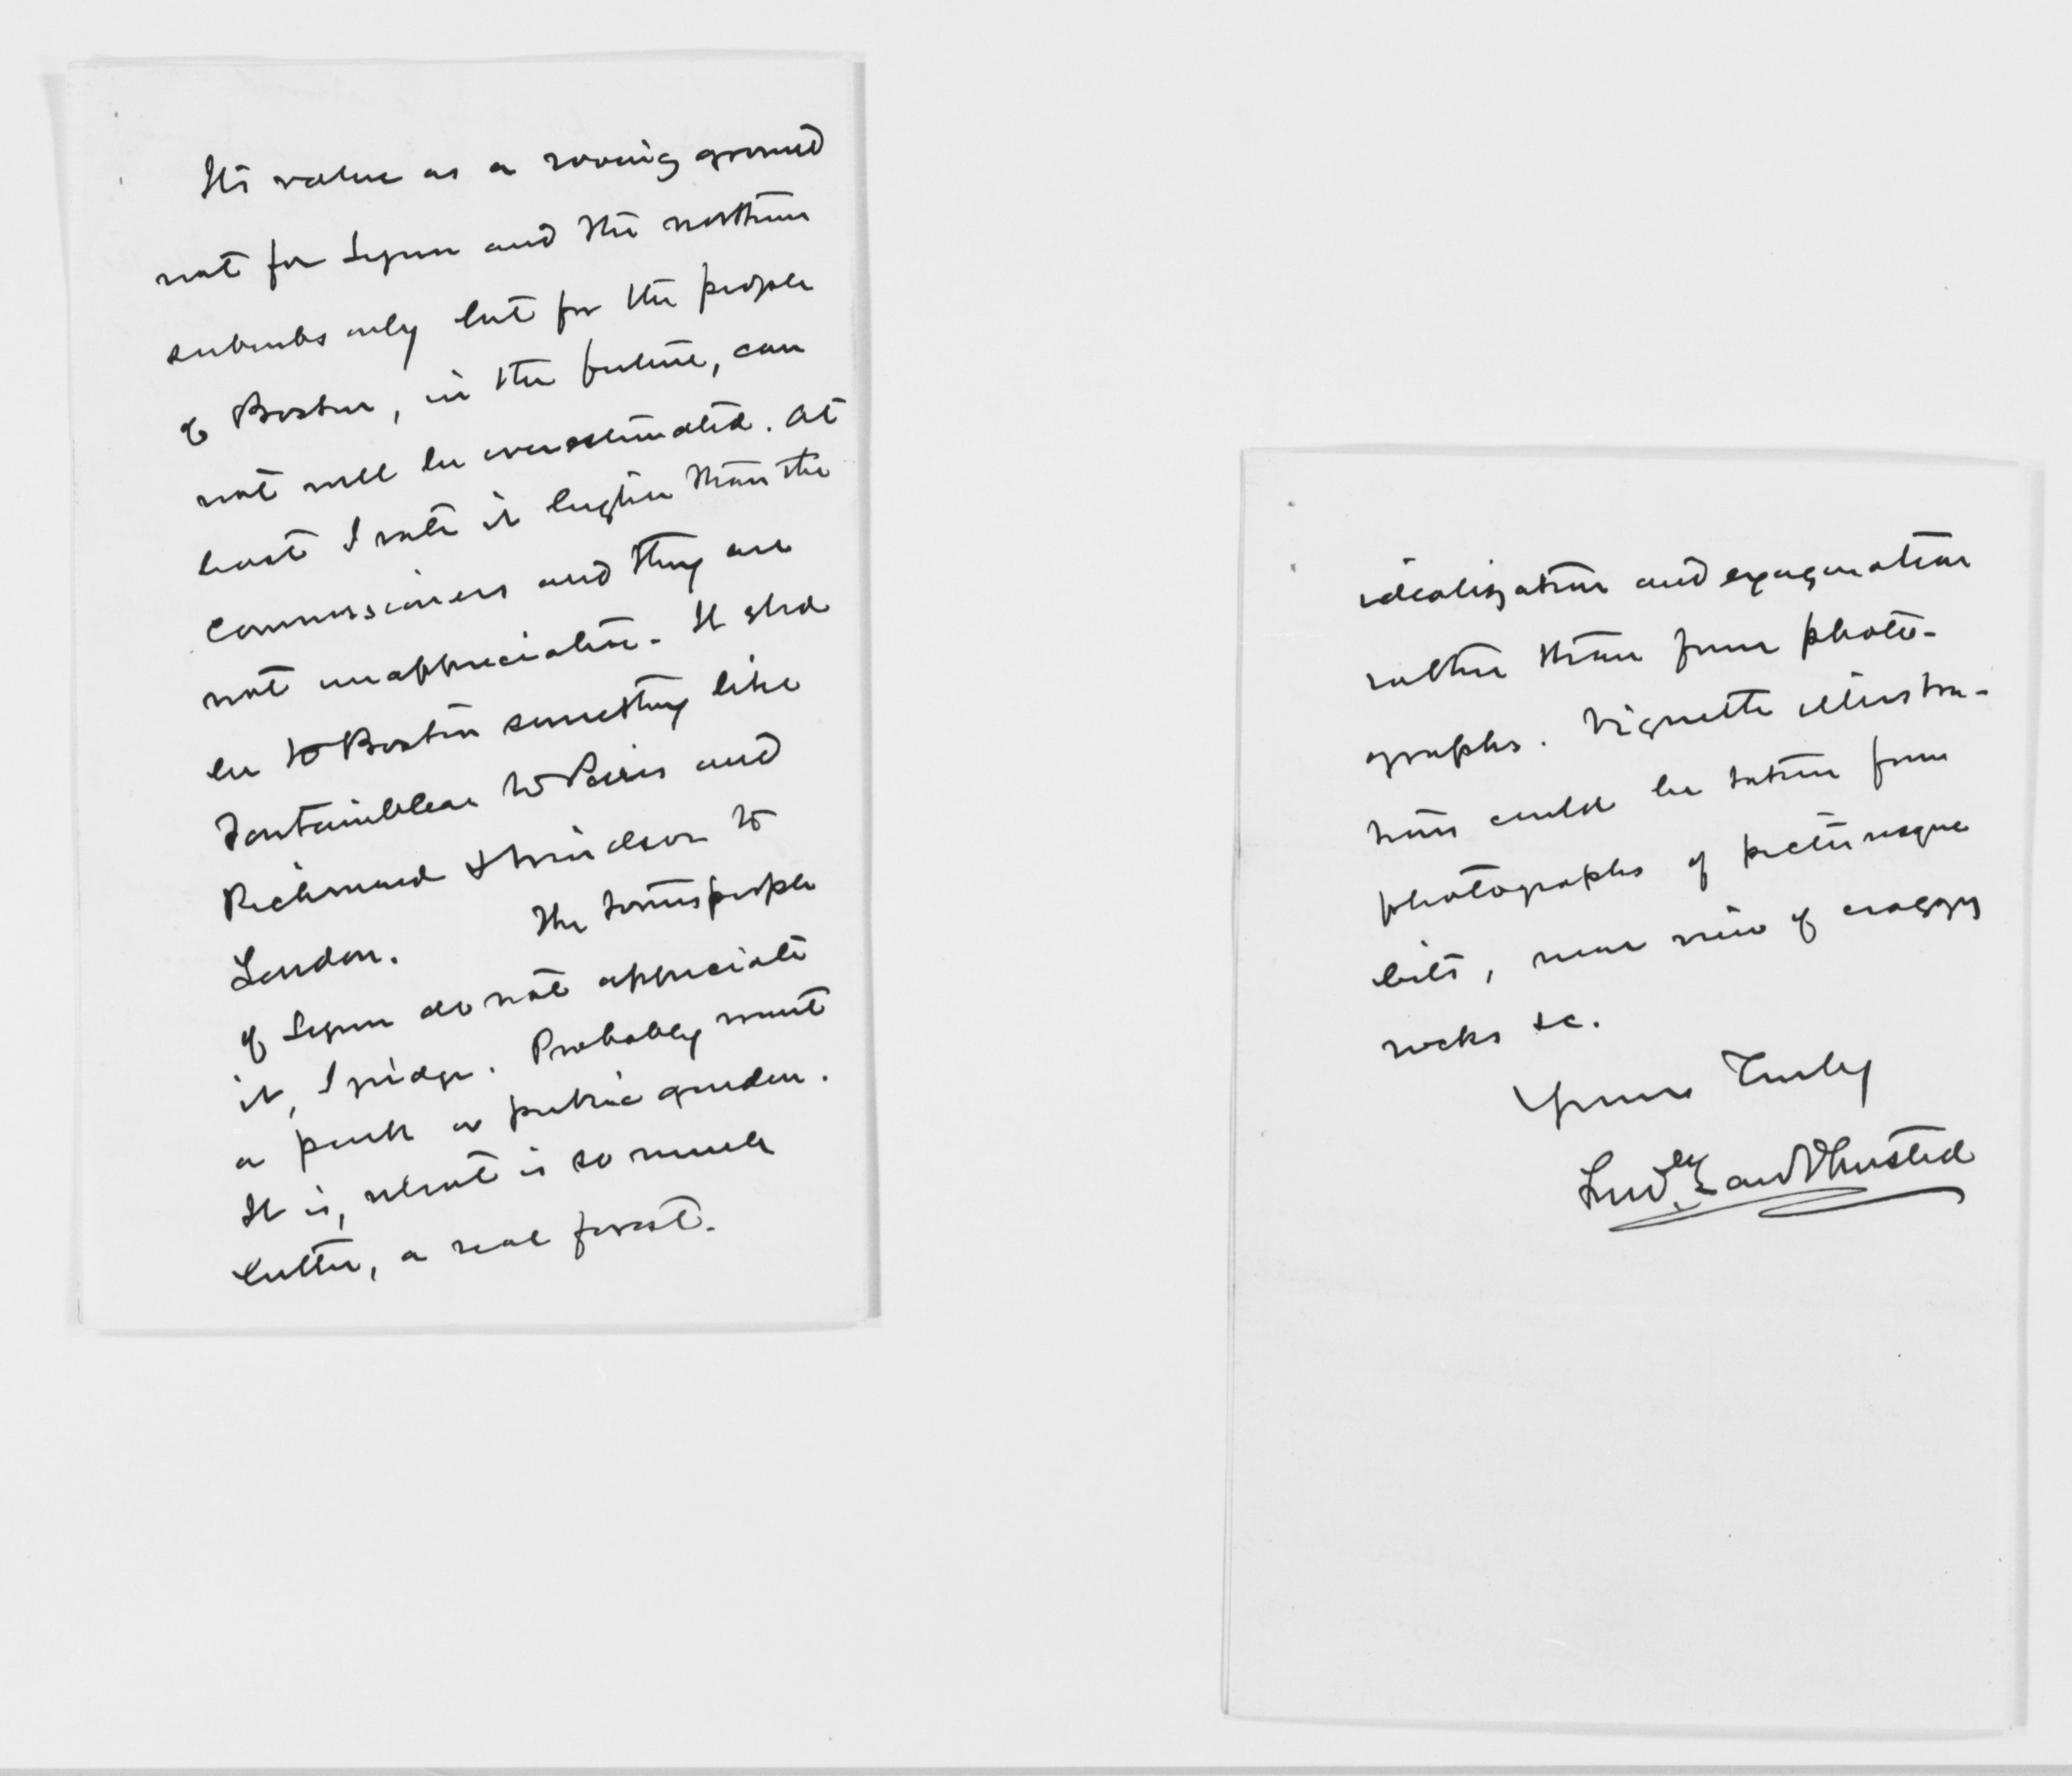 Its value as a roving ground
not for Lynn and the northern
suburbs only but for the people
of Boston, in the future, can
not well be overestimated. At
least I rate it higher than the
Commissioners and they are
not unappreciative. It shd
be to Boston something like
Fontainbleau to Paris and
Richmond & Windsor to
London. The townspeople
of Lynn do not appreciate
it, I judge. Probably want
a park or public garden.
It is, what is so much
better, a real forest.
idealization and exageration
rather than from photo-
graphs. Vignette illustra-
tions could be taken from
photographs of picturesque
bits, near view of craggy
rocks &c.
Yours Truly
Fredk Law Olmsted